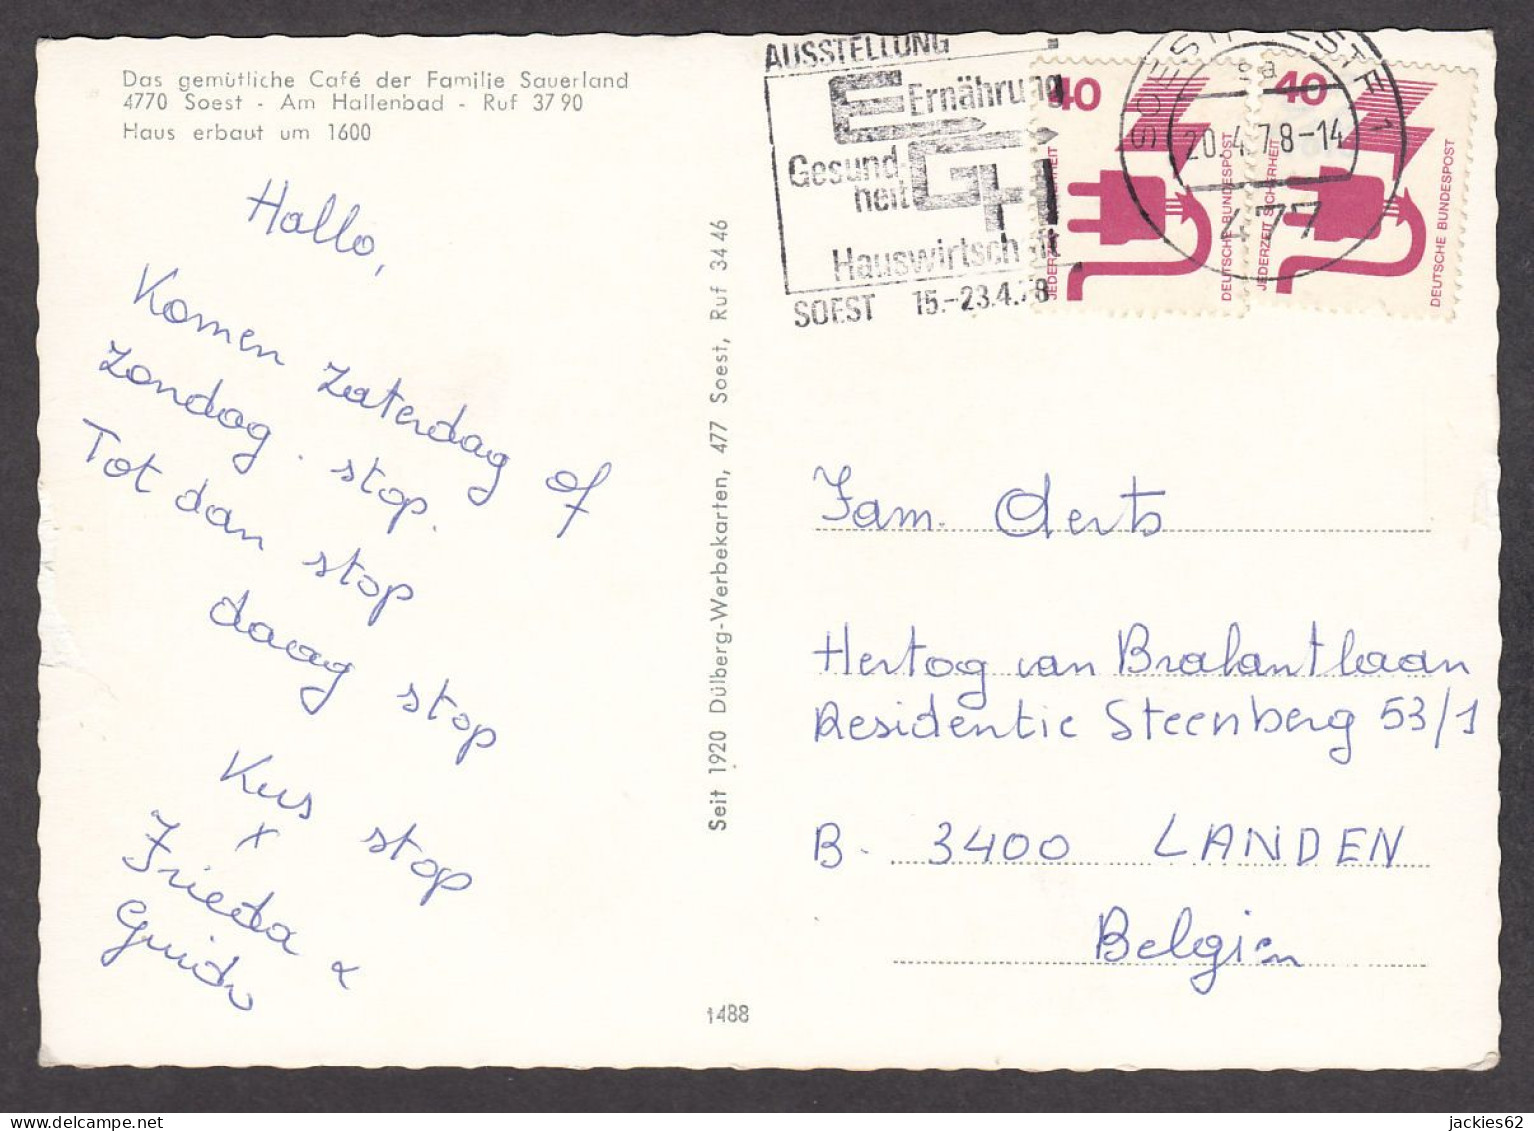 Das gemütliche Café der Familie Sauerland
4770 Soest - Am Hallenbad - Ruf 37 90
Haus erbaut um 1600
Hallo,
Komen zaterdag of
zondag. stop.
Tot dan stop
daag stop
Kus stop
x
Frieda &
Guido
Seit 1920 Dülberg-Werbekarten, 477 Soest, Ruf 34 46
1488
AUSSTELLUNG
Ernährung
Gesund-
heit
EGH
Hauswirtschaft
SOEST 15.-23.4.78
40
JEDERZEIT SICHERHEIT
DEUTSCHE BUNDESPOST
40
JEDERZEIT SICHERHEIT
DEUTSCHE BUNDESPOST
SOEST WESTF 1
20.4.78-14
477
Fam. Aerts
Hertog van Brabantlaan
Residentie Steenberg 53/1
B. 3400 LANDEN
Belgien
jackies62